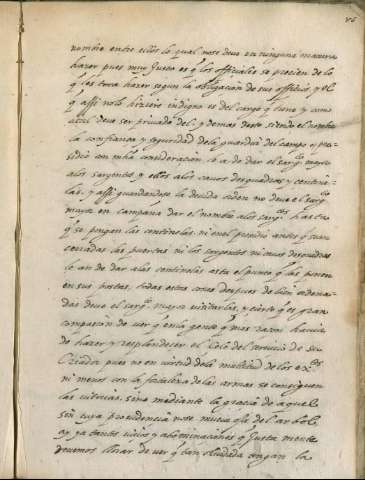 nombre entre ellos lo qual no se deve en ninguna manera
hazer pues muy Justo es q̃ los officiales se precien de lo
q̃ les toca hazer segun la obligaçion de sus officios, y el
q̃ assi no lo hiziere indigno es del cargo q̃ tiene y como
atal deve ser privado del, y demas desto siendo el nombre
la confiança y seguridad dela guardia del campo o pre-
sidio con mha consideraçion. lo a de dar el sargto mayor
alos sargentos y ellos alos cavos desquadras y centine-
las, y assi guardandose la devida orden no deve el sargto
mayor en campaña dar el nombre alos sargtos hasta
q̃ se pongan las centinelas ni en el presidio antes q̃ sean
cerradas las puertas ni los sargentos ni cavos desquadras
lo an de dar alas centinelas asta el punto q̃ las ponen
en sus postas, todas estas cosas despues de bien ordena-
das deve el sargto mayor visitarlas, y cierto q̃ es gran
compasion de ver q̃ en la gente q̃ mas razon havia
de hazer y resplandecer el Celo del servicio de su
Criador pues no en virtud dela multitud de los exos
ni menos con la fortaleza de las armas se consiguen
las vitorias, sino mediante la graçia de aquel
sin cuya providencia no se mueve oja del arbol,
ay ya tantos viçios y abominaçiones q̃ Justa mente
devemos llorar de ver q̃ tan olvidada tengan la